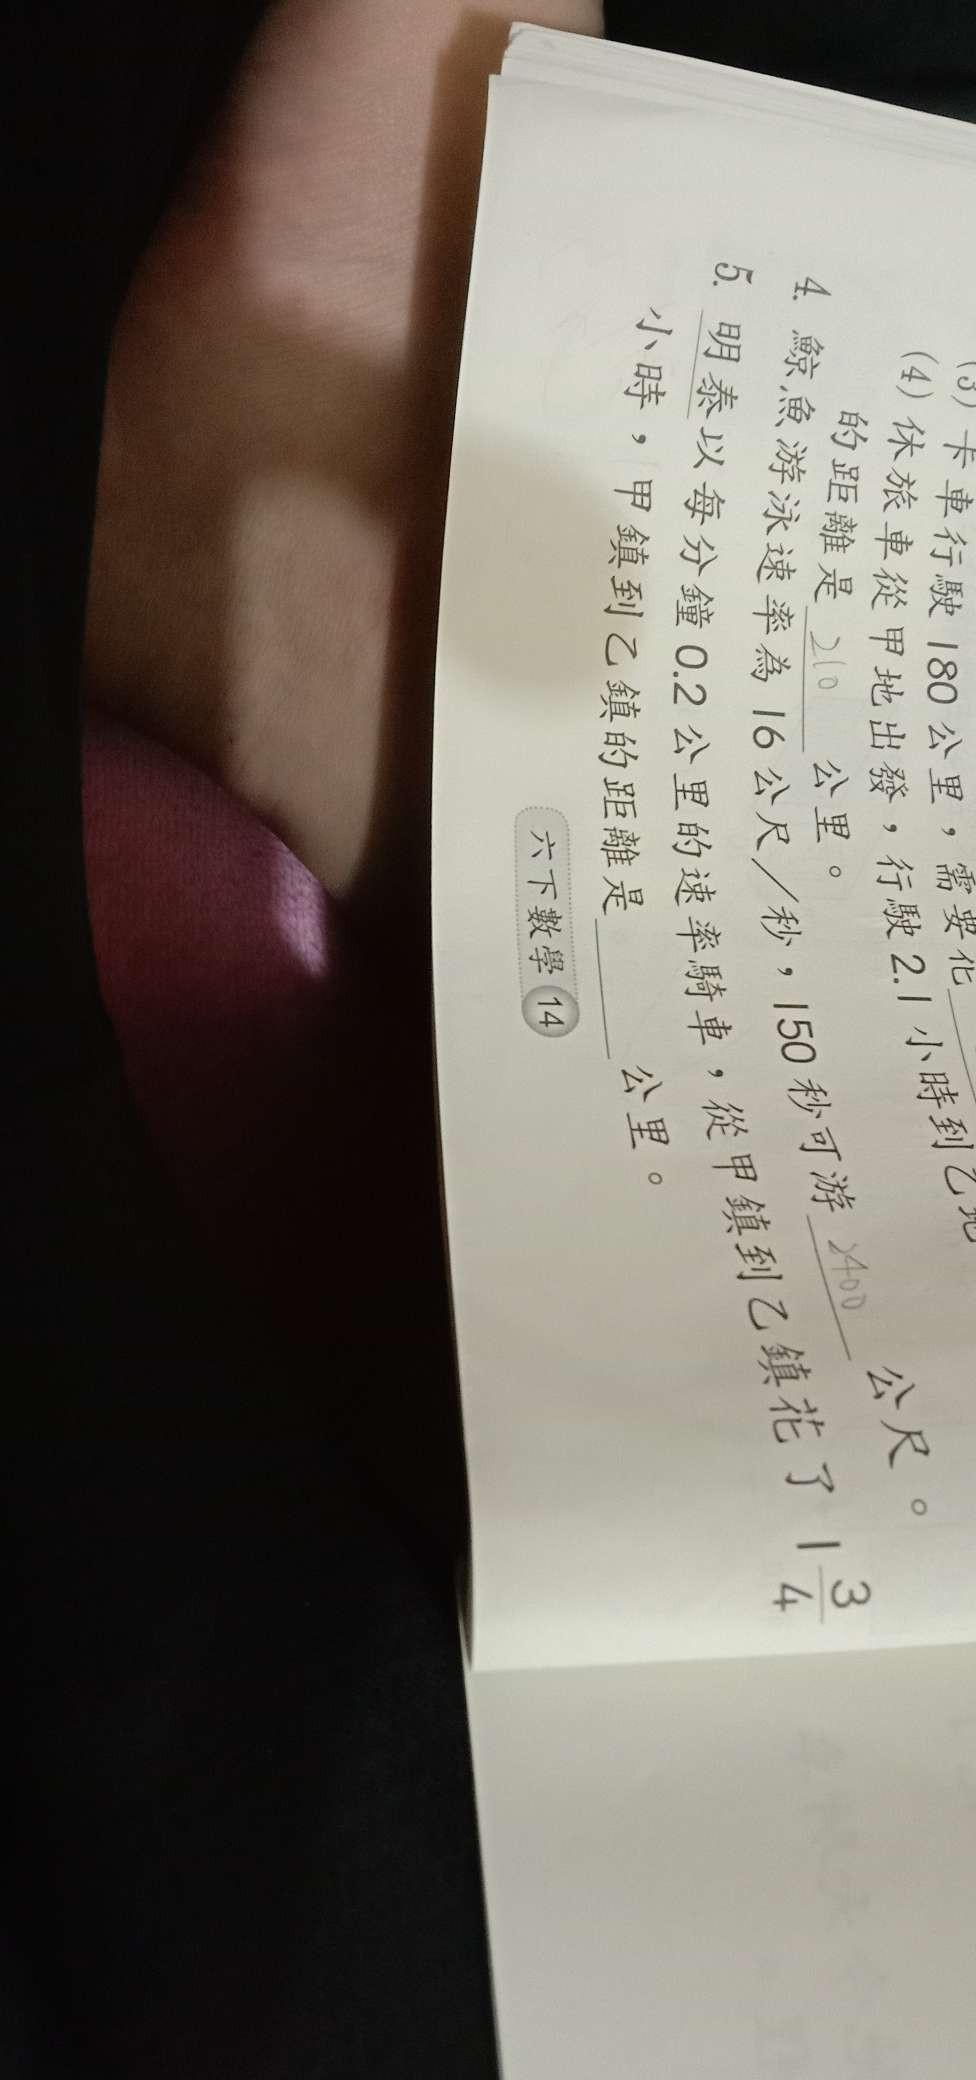 (3) 卡車行駛 180 公里，需要花
(4) 休旅車從甲地出發，行駛 2.1 小時到乙地
的距離是 210 公里。
4. 鯨魚游泳速率為 16 公尺／秒，150 秒可游 2400 公尺。
5. 明泰以每分鐘 0.2 公里的速率騎車，從甲鎮到乙鎮花了 1 3/4
小時，甲鎮到乙鎮的距離是＿＿＿公里。
六下數學 14